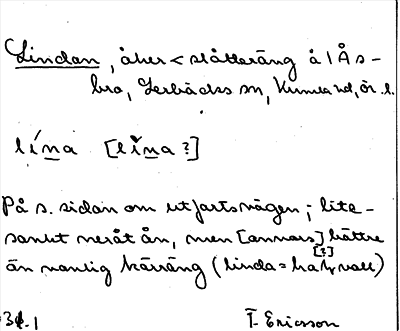 Lindan, åker < slåtteräng å l Ås-
bro, Lerbäcks sn, Kumla hd, ör. l.
lína [lĭna?]
På s. sidan om utfartsvägen; lite
sankt neråt ån, men [annars] bättre
än vanlig kärräng (linda = [?] vall)
T. Ericsson